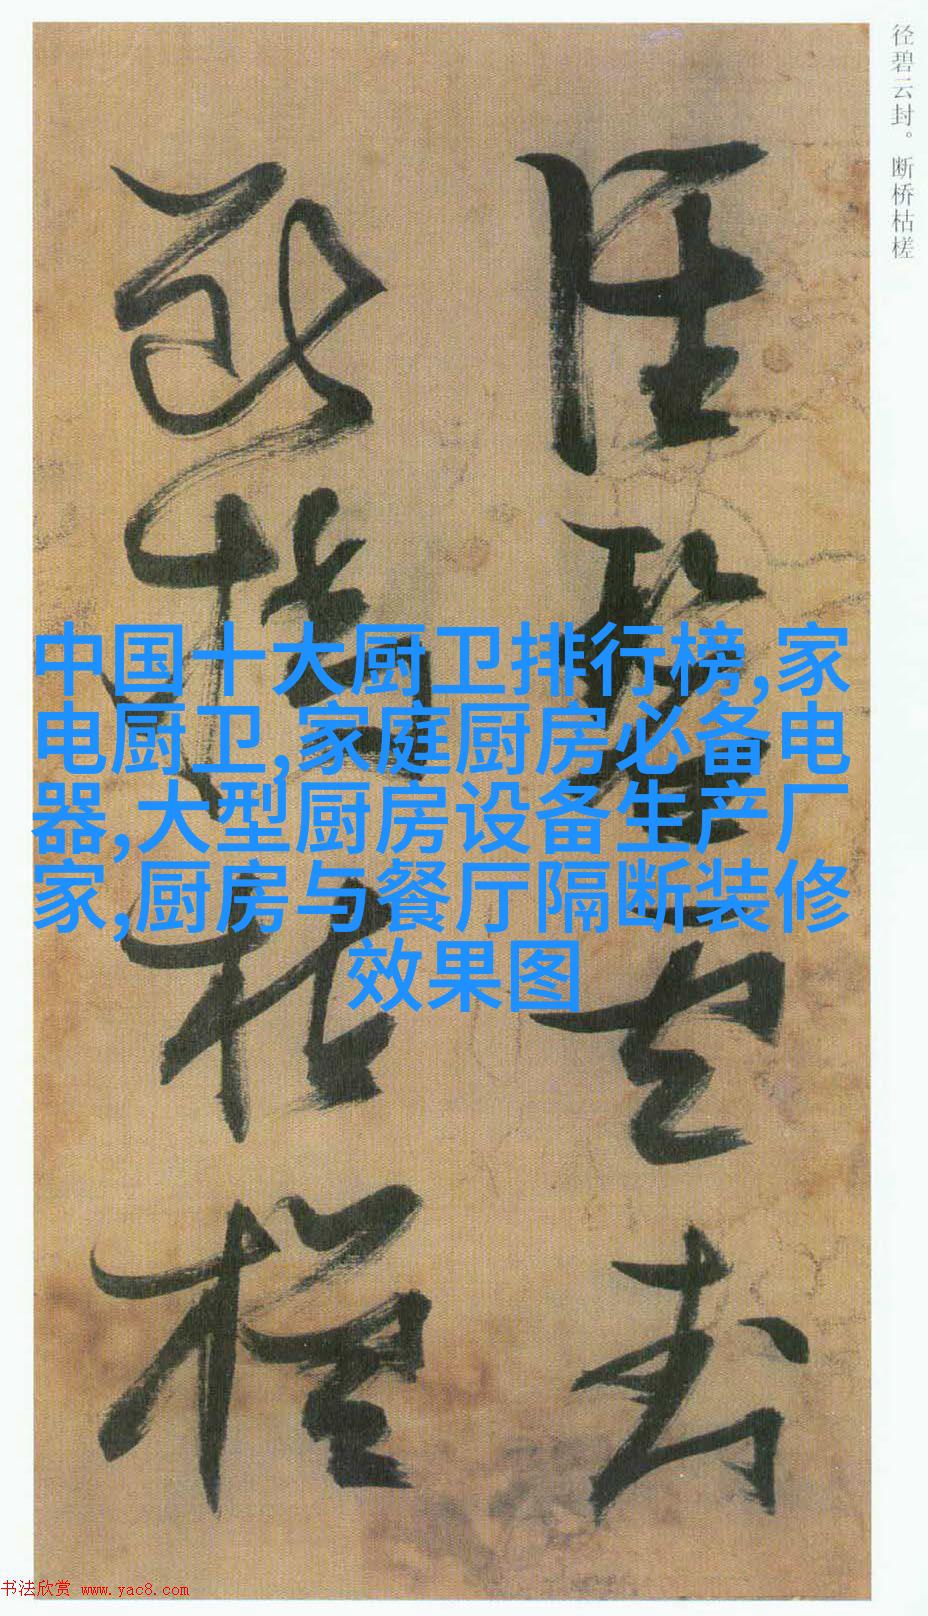 径碧云封。断桥枯槎
径碧云封
断桥枯槎
中国十大厨卫排行榜,家
电厨卫,家庭厨房必备电
器,大型厨房设备生产厂
家,厨房与餐厅隔断装修
效果图
书法欣赏 www.yac8.com